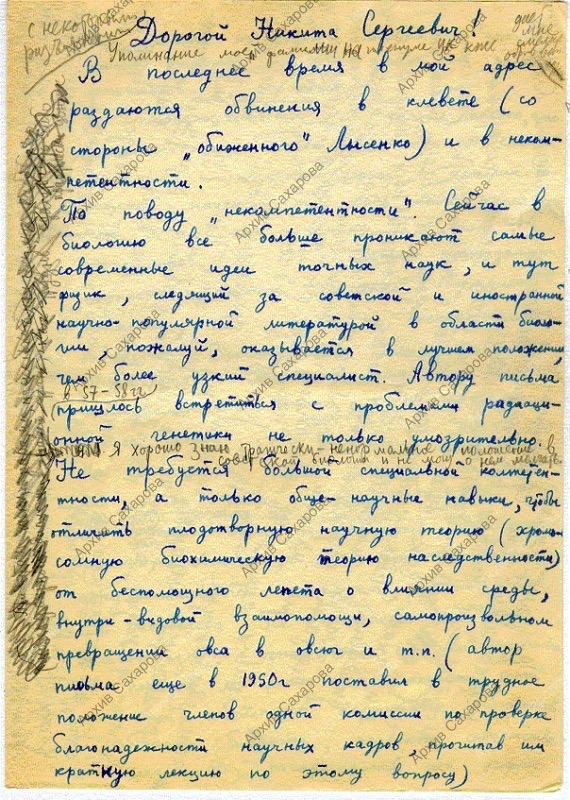 с некоторыми
разъяснениями
Дорогой Никита Сергеевич!
дает
мне
Упоминание моей фамилии на пленуме ЦК КПСС
В последнее время в мой адрес
раздаются обвинения в клевете (со
стороны „обиженного" Лысенко) и в неком-
петентности.
По поводу „некомпетентности". Сейчас в
биологию все больше проникают самые
современные идеи точных наук, и тут
физик, следящий за советской и иностранной
научно-популярной литературой в области биоло-
гии, пожалуй, оказывается в лучшем положении,
чем более узкий специалист. Автору письма
в 57-58 гг
пришлось встретиться с проблемами радиаци-
онной генетики не только умозрительно.
Я хорошо знаю трагически-ненормальное положение в
советской биологии и не могу о нем молчать
Не требуется большой специальной компетен-
тности, а только обще-научные навыки, чтобы
отличить плодотворную научную теорию (хромо-
сомную биохимическую теорию наследственности)
от беспомощного лепета о влиянии среды,
внутри-видовой взаимопомощи, самопроизвольном
превращении овса в овсюг и т.п. (автор
письма еще в 1950г поставил в трудное
положение членов одной комиссии по проверке
благонадежности научных кадров, прочитав им
краткую лекцию по этому вопросу)
Архив Сахарова